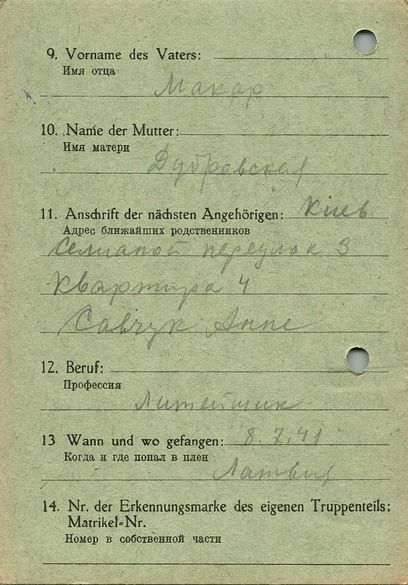 9. Vorname des Vaters:
Имя отца
Макар
10. Name der Mutter:
Имя матери
Дубровская
11. Anschrift der nächsten Angehörigen: Киев
Адрес ближайших родственников
переулок 3
Квартира 4
Савчук Анне
12. Beruf:
Профессия
Литейщик
13 Wann und wo gefangen: 8.7.41
Когда и где попал в плен
Латвия
14. Nr. der Erkennungsmarke des eigenen Truppenteils:
Matrikel-Nr.
Номер в собственной части